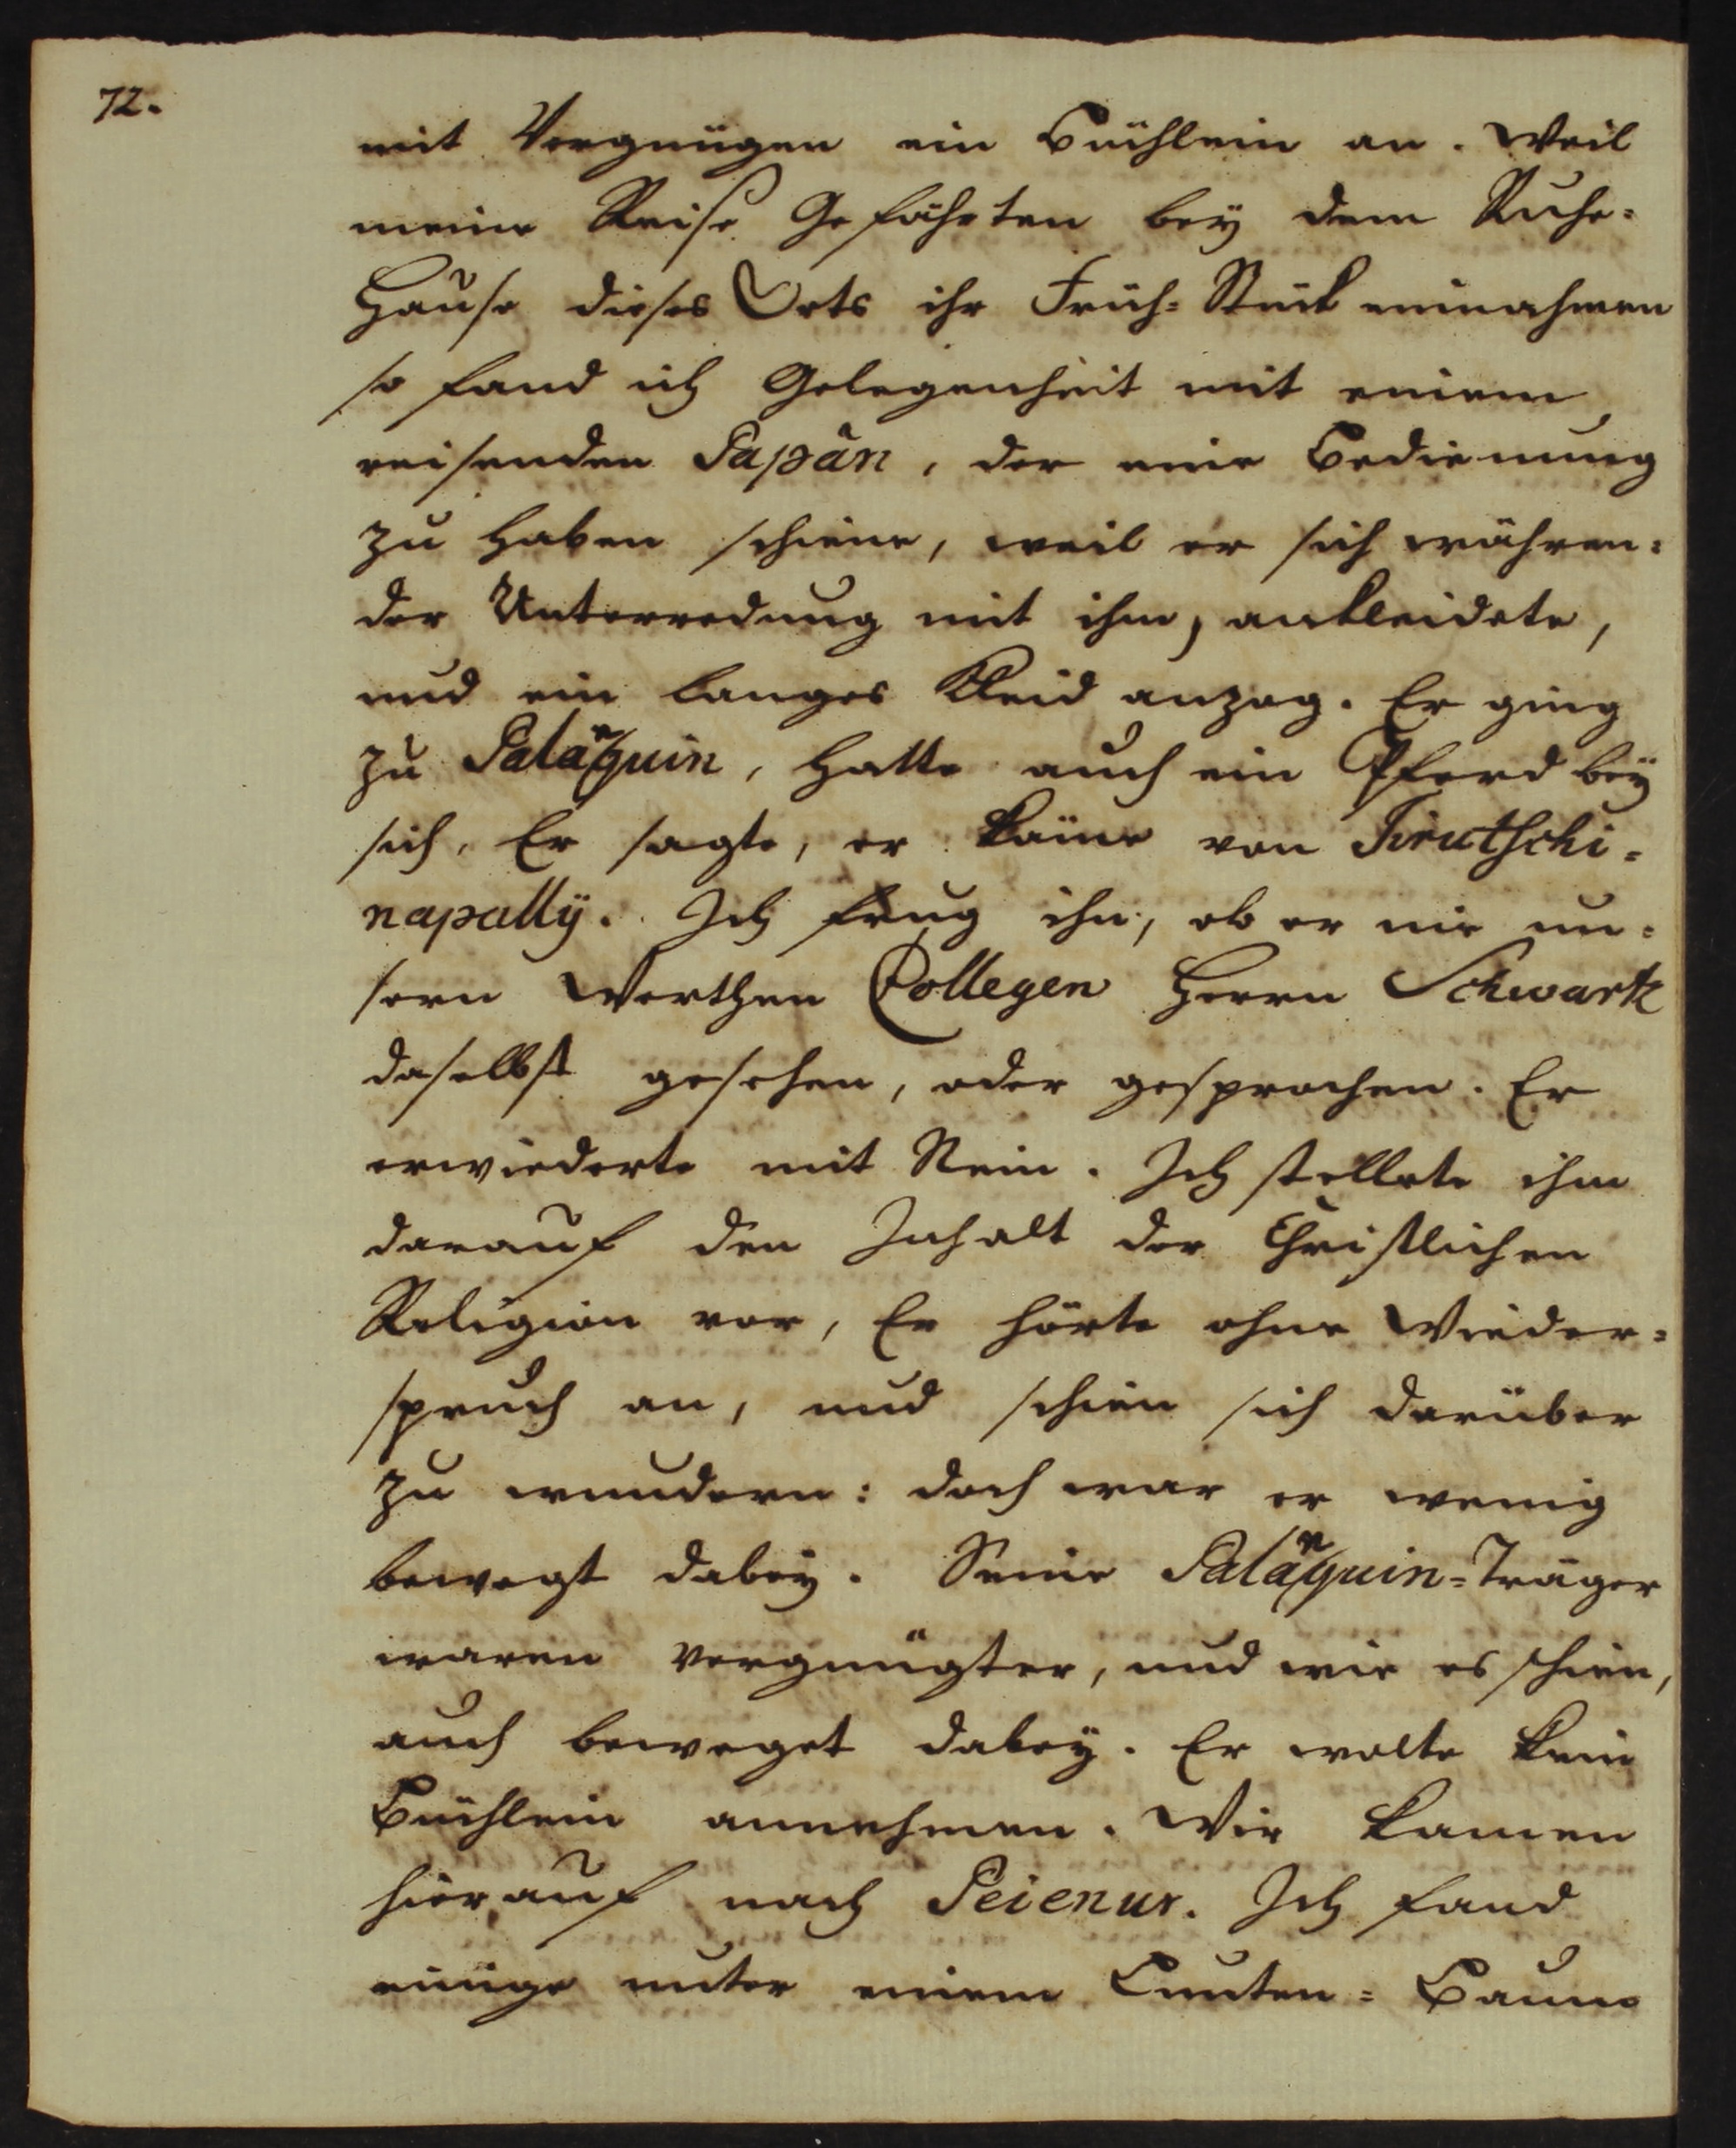 72.
mit Vergnügen ein Büchlein an. Weil
meine Reise Gefährten bey dem Ruhe-
Hause dieses Orts ihr Früh-Stück einnahmen
so fand ich Gelegenheit mit einem
reisenden Papân, der eine Bedienung
zu haben schiene, weil er sich währen-
der Unterredung mit ihm, ankleidete,
und ein langes Kleid anzog. Er ging
zu Palanquin, hatte auch ein Pferd bey
sich. Er sagte, er käme von Tirutschi-
napally. Ich frug ihn, ob er nie un-
sern Werthen Collegen Herrn Schwartz
daselbst gesehen, oder gesprochen. Er
erwiederte mit Nein. Ich stellete ihm
darauf den Inhalt der Christlichen
Religion vor, Er hörte ohne Wieder-
spruch an, und schien sich darüber
zu wundern: doch war er wenig
bewegt dabey. Seine Palanquin-Träger
waren vergnügter, und wie es schien,
auch beweget dabey. Er wolte kein
Büchlein annehmen. Wir kamen
hierauf nach Peienur. Ich fand
einige unter einem Baume